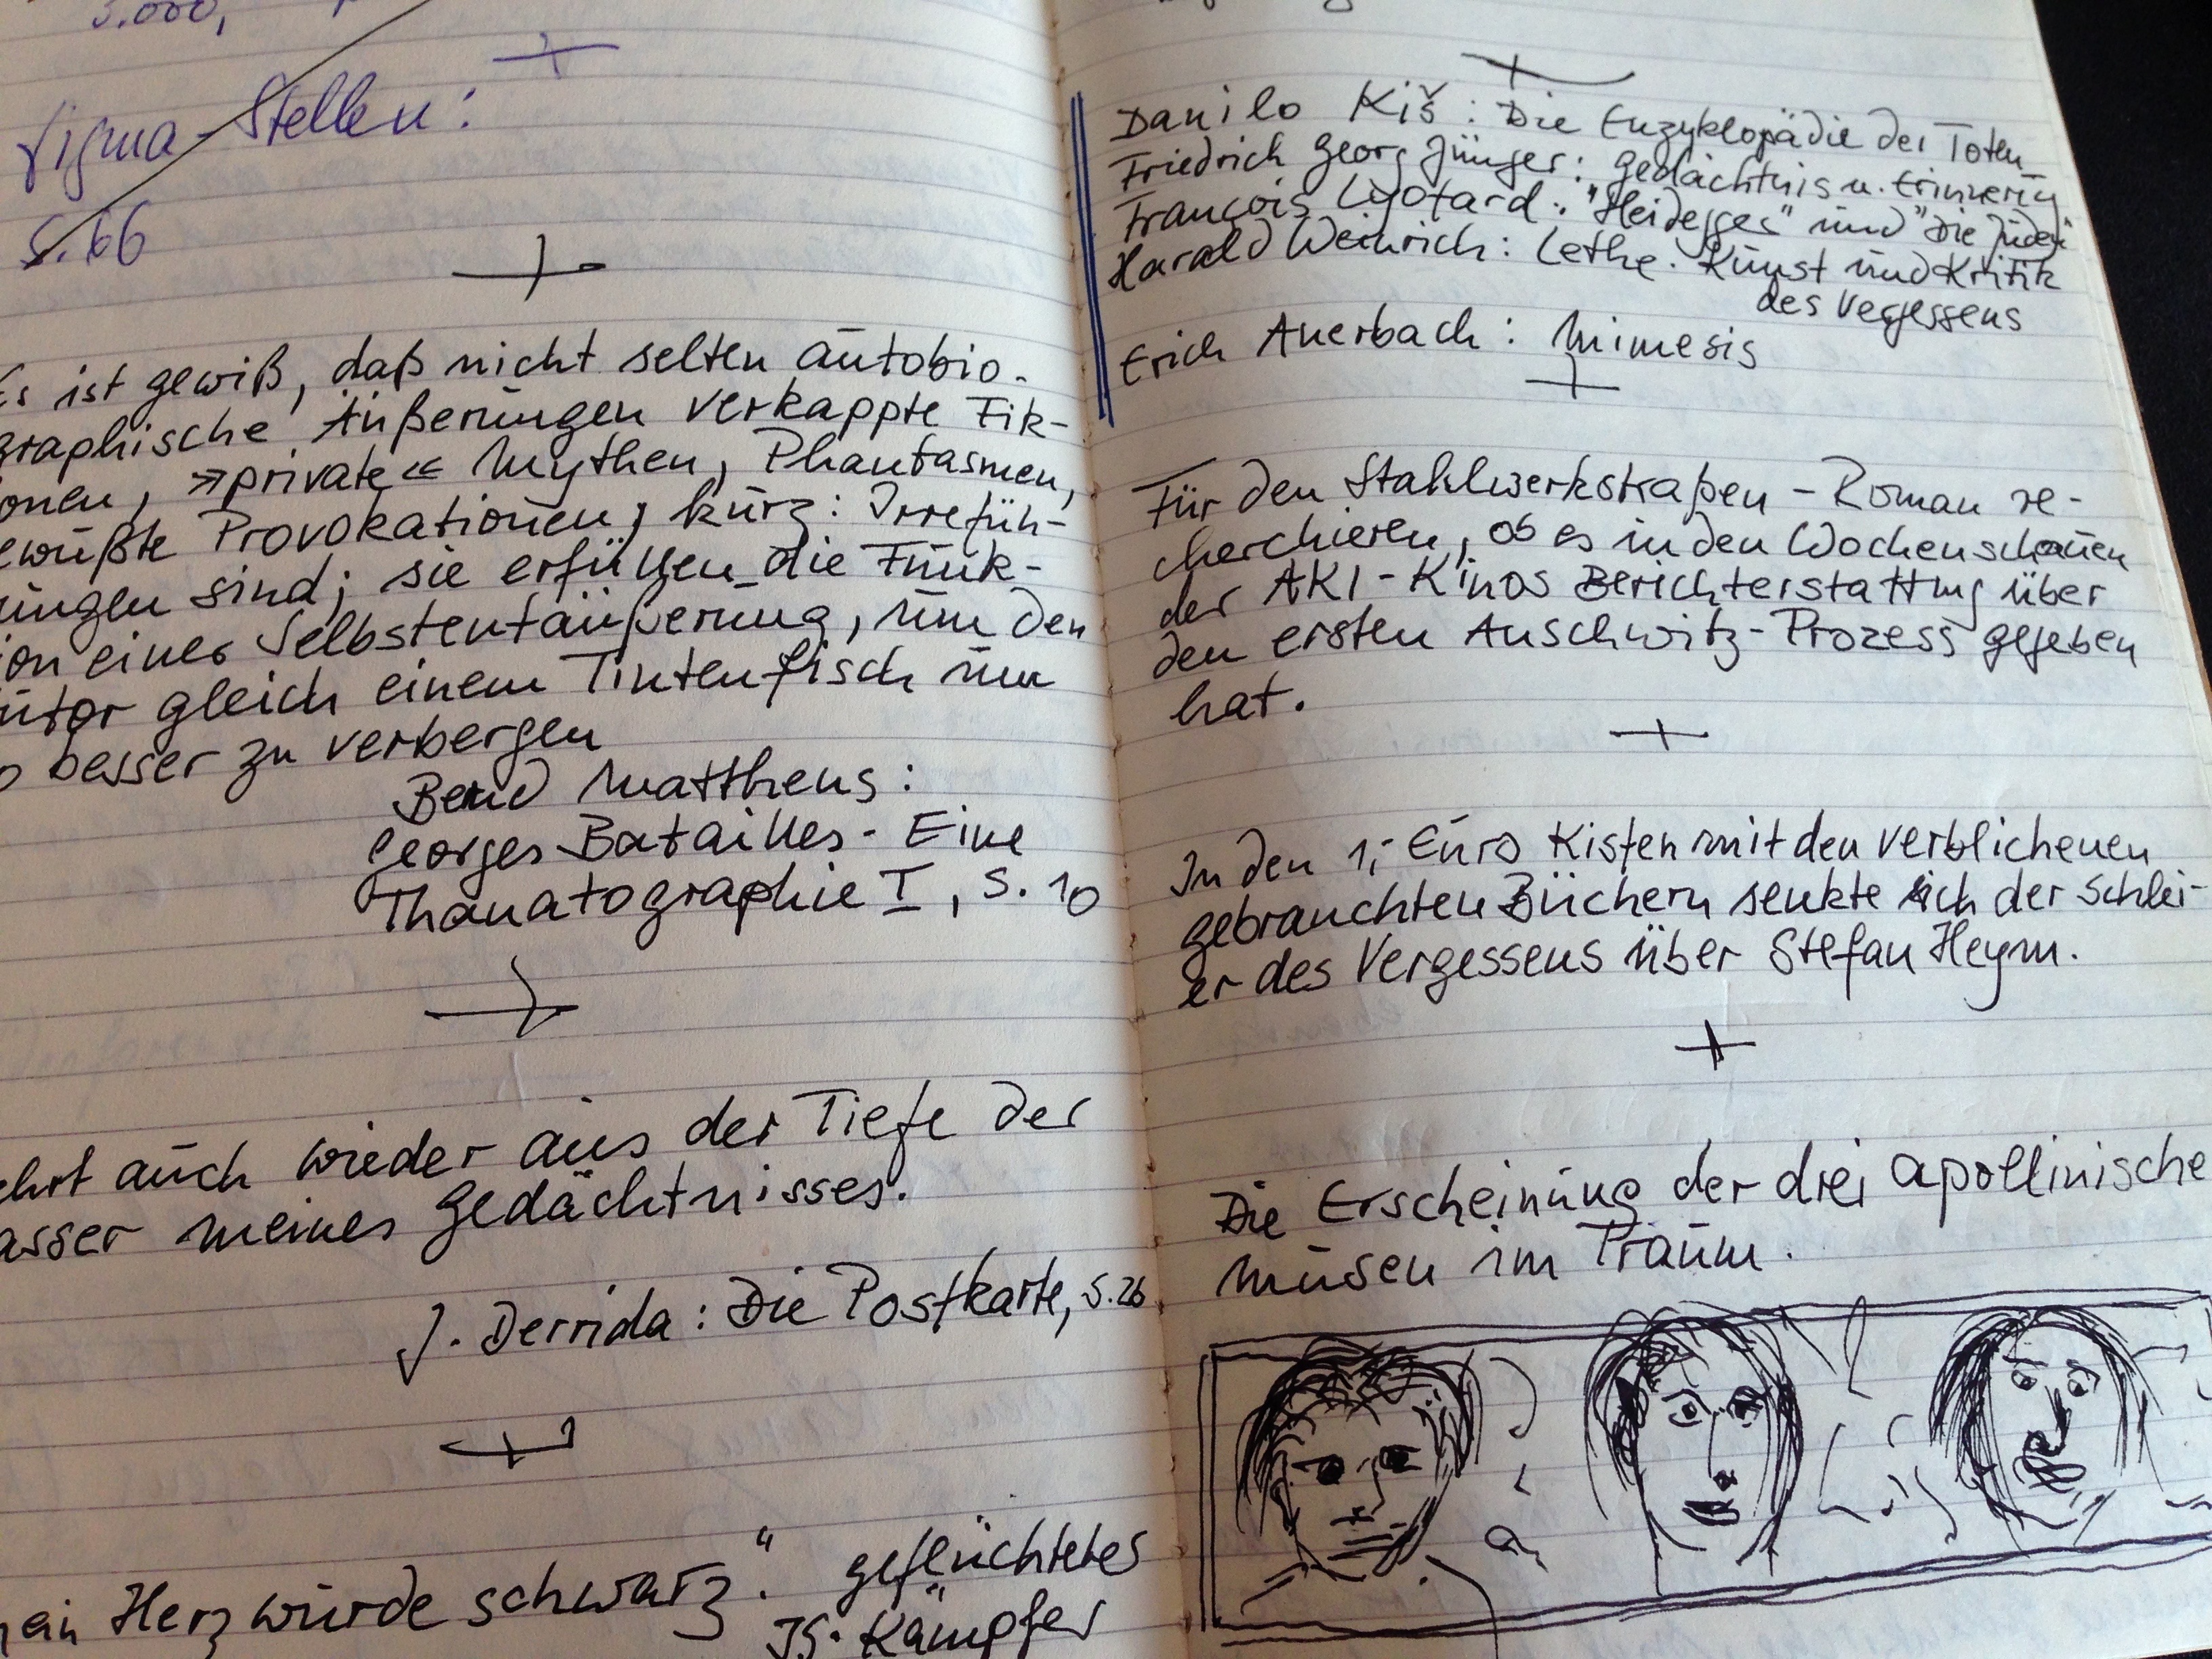 5.000,
Sigma-Stellen:
S. 66
Es ist gewiß, daß nicht selten autobio-
graphische Äußerungen verkappte Fik-
onen, »private« Mythen, Phantasmen,
ewußte Provokationen, kurz: Irrefüh-
ungen sind; sie erfüllen die Funk-
ion einer Selbstentäußerung, um den
utor gleich einem Tintenfisch um
o besser zu verbergen
Bernd Mattheus:
Georges Batailles - Eine
Thanatographie I, S. 10
ehrt auch wieder aus der Tiefe der
asser meines Gedächtnisses.
J. Derrida: Die Postkarte, S. 26
ein Herz wurde schwarz." geflüchteter
IS-Kämpfer
Danilo Kiš: Die Enzyklopädie der Toten
Friedrich Georg Jünger: Gedächtnis u. Erinnerung
François Lyotard: "Heidegger" und "Die Juden"
Harald Weinrich: Lethe. Kunst und Kritik
des Vergessens
Erich Auerbach: Mimesis
Für den Stahlwerkstraßen-Roman re-
cherchieren, ob es in den Wochenschauen
der AKI-Kinos Berichterstattung über
den ersten Auschwitz-Prozess gegeben
hat.
In den 1,- Euro Kisten mit den verblichenen
gebrauchten Büchern senkte sich der Schlei-
er des Vergessens über Stefan Heym.
Die Erscheinung der drei apollinische
Musen im Traum.